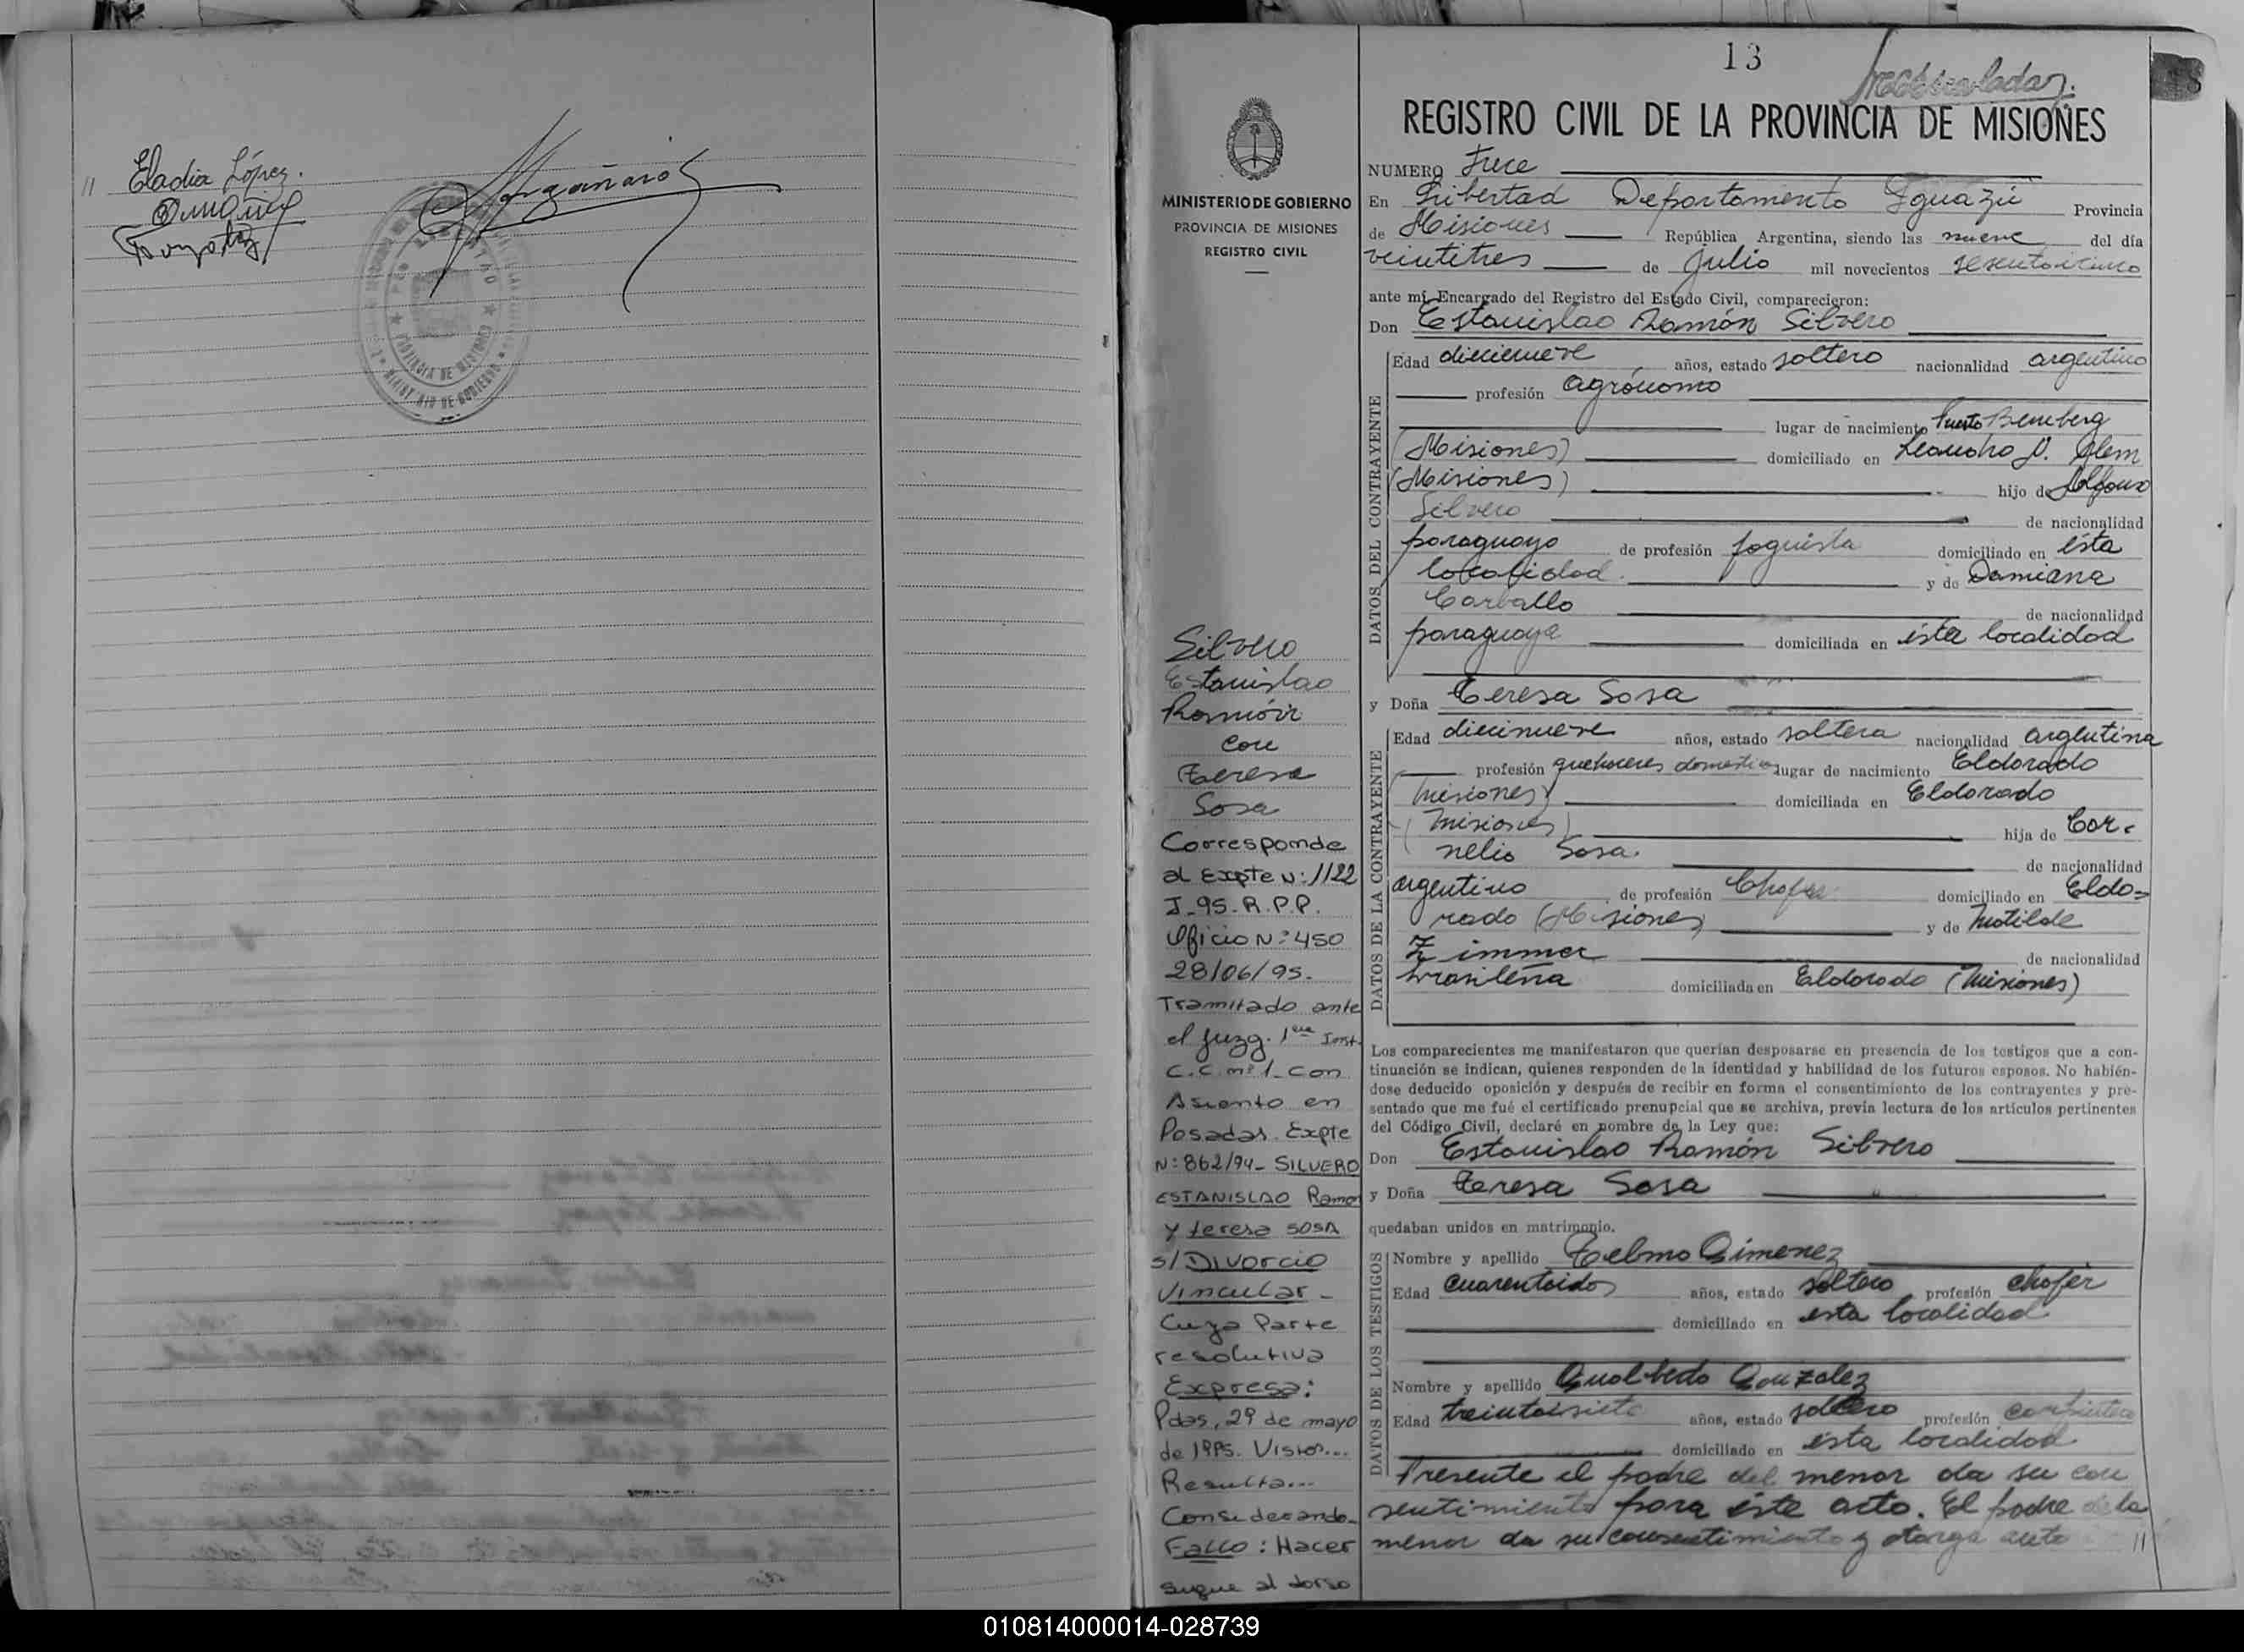 // Eladia López.
13
REGISTRO CIVIL DE LA PROVINCIA DE MISIONES
MINISTERIO DE GOBIERNO
PROVINCIA DE MISIONES
REGISTRO CIVIL
NUMERO Trece
En Libertad Departamento Iguazú Provincia
de Misiones República Argentina, siendo las nueve del día
veintitres de Julio mil novecientos sesentaicinco
ante mí, Encargado del Registro del Estado Civil, comparecieron:
Don Estanislao Ramón Silvero
DATOS DEL CONTRAYENTE
Edad diecinueve años, estado soltero nacionalidad argentino
profesión agrónomo
lugar de nacimiento Puerto Bemberg
(Misiones) domiciliado en Leandro N. Alem
(Misiones) hijo de Alfonso
Silvero de nacionalidad
paraguayo de profesión foguista domiciliado en ésta
localidad. y de Damiana
Carballo de nacionalidad
paraguaya domiciliada en ésta localidad
y Doña Teresa Sosa
DATOS DE LA CONTRAYENTE
Edad diecinueve años, estado soltera nacionalidad argentina
profesión quehaceres domestic lugar de nacimiento Eldorado
(Misiones) domiciliada en Eldorado
(Misiones) hija de Cor-
nelio Sosa. de nacionalidad
argentino de profesión Chofer domiciliado en Eldo=
rado (Misiones) y de Matilde
Zimmer de nacionalidad
brasileña domiciliada en Eldorado (Misiones)
Los comparecientes me manifestaron que querían desposarse en presencia de los testigos que a con-
tinuación se indican, quienes responden de la identidad y habilidad de los futuros esposos. No habién-
dose deducido oposición y después de recibir en forma el consentimiento de los contrayentes y pre-
sentado que me fué el certificado prenupcial que se archiva, previa lectura de los artículos pertinentes
del Código Civil, declaré en nombre de la Ley que:
Don Estanislao Ramón Silvero
y Doña Teresa Sosa
quedaban unidos en matrimonio.
DATOS DE LOS TESTIGOS
Nombre y apellido Telmo Gimenez
Edad cuarentaidos años, estado soltero profesión chofer
domiciliado en esta localidad
Nombre y apellido Gualberto Gonzalez
Edad treintaisiete años, estado soltero profesión carpintero
domiciliado en ésta localidad
Presente el padre del menor da su con
sentimiento para éste acto. El padre de la
menor da su consentimiento y otorga auto //
Silvero
Estanislao
Ramón
con
Teresa
Sosa
Corresponde
al Expte N: 1122
J-95-R.P.P.
Oficio N: 450
28/06/95.
Tramitado ante
el Juzg. 1era Inst.
C.C. nº 1. con
Asiento en
Posadas. Expte
N: 862/94 - SILVERO
ESTANISLAO Ramon
y teresa SOSA
s/ DIVORCIO
Vincular -
Cuya Parte
resolutiva
Expresa:
Pdas, 29 de mayo
de 1995. Vistos...
Resulta...
Considerando-
FALLO: Hacer
sigue al dorso
010814000014-028739